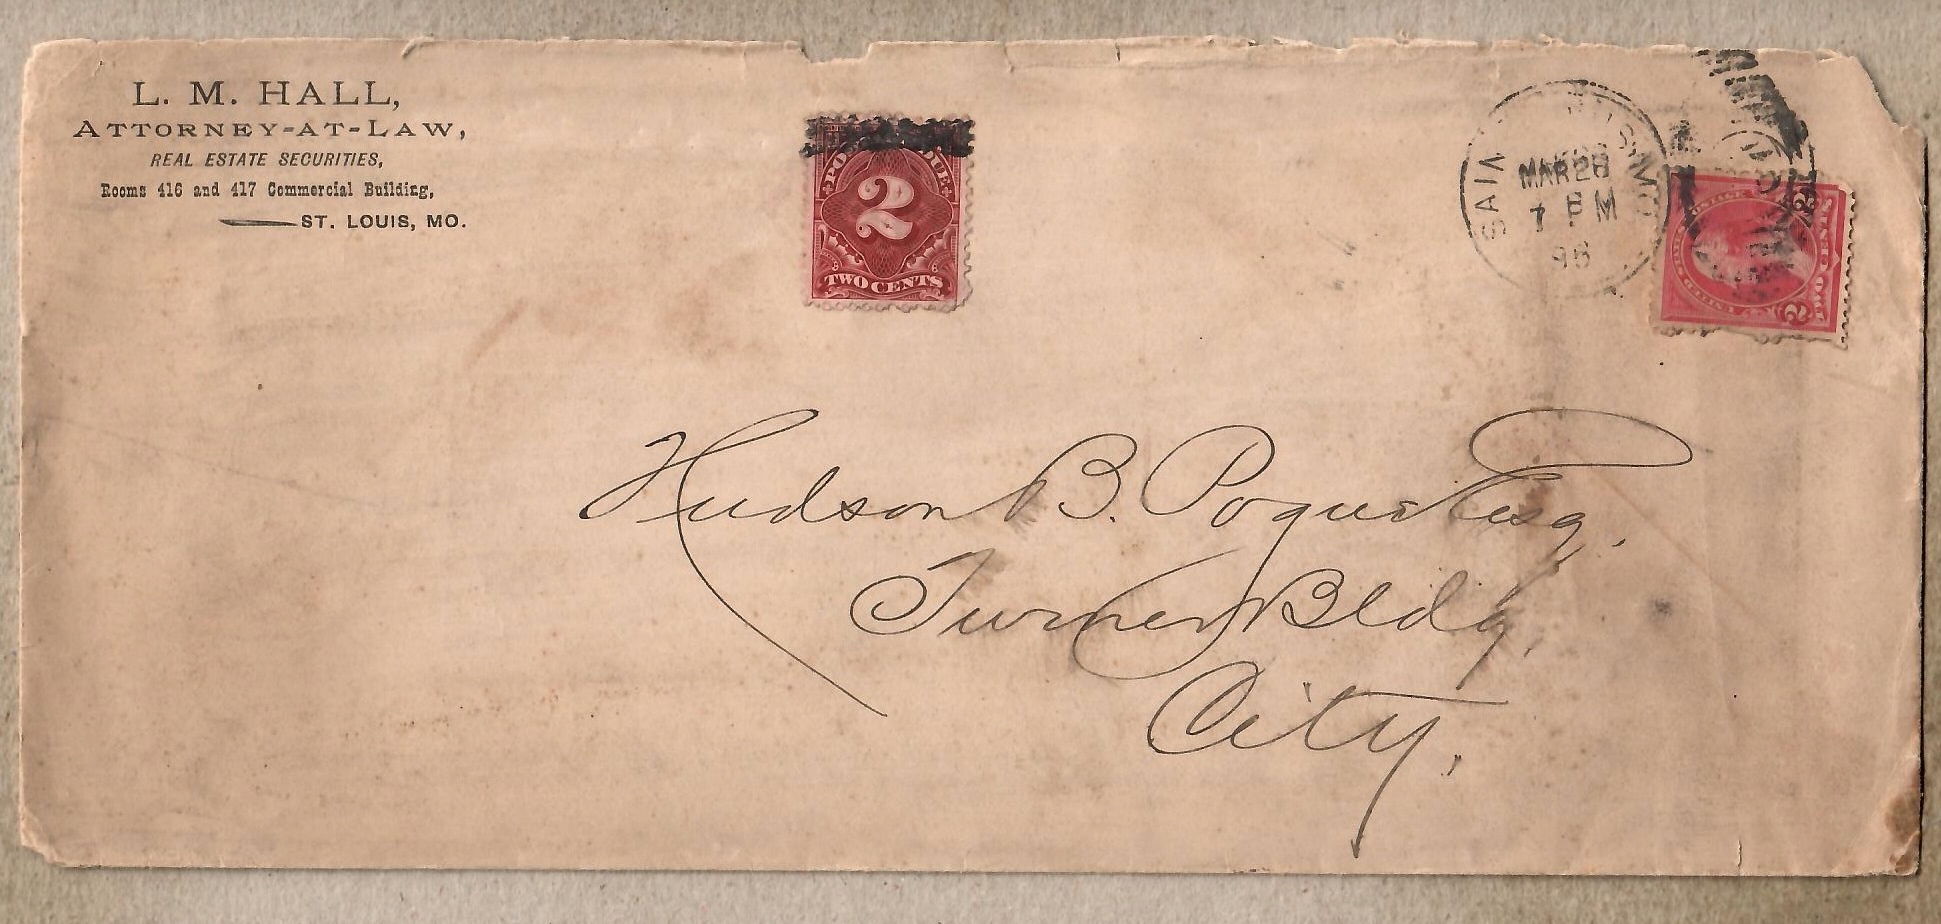 L. M. HALL,
ATTORNEY-AT-LAW,
REAL ESTATE SECURITIES,
Rooms 416 and 417 Commercial Building,
ST. LOUIS, MO.
2
TWO CENTS
MAR 28
7 PM
96
TWO CENTS
2
Hudson B. Pogue Esq.
Turner Bldg,
City.